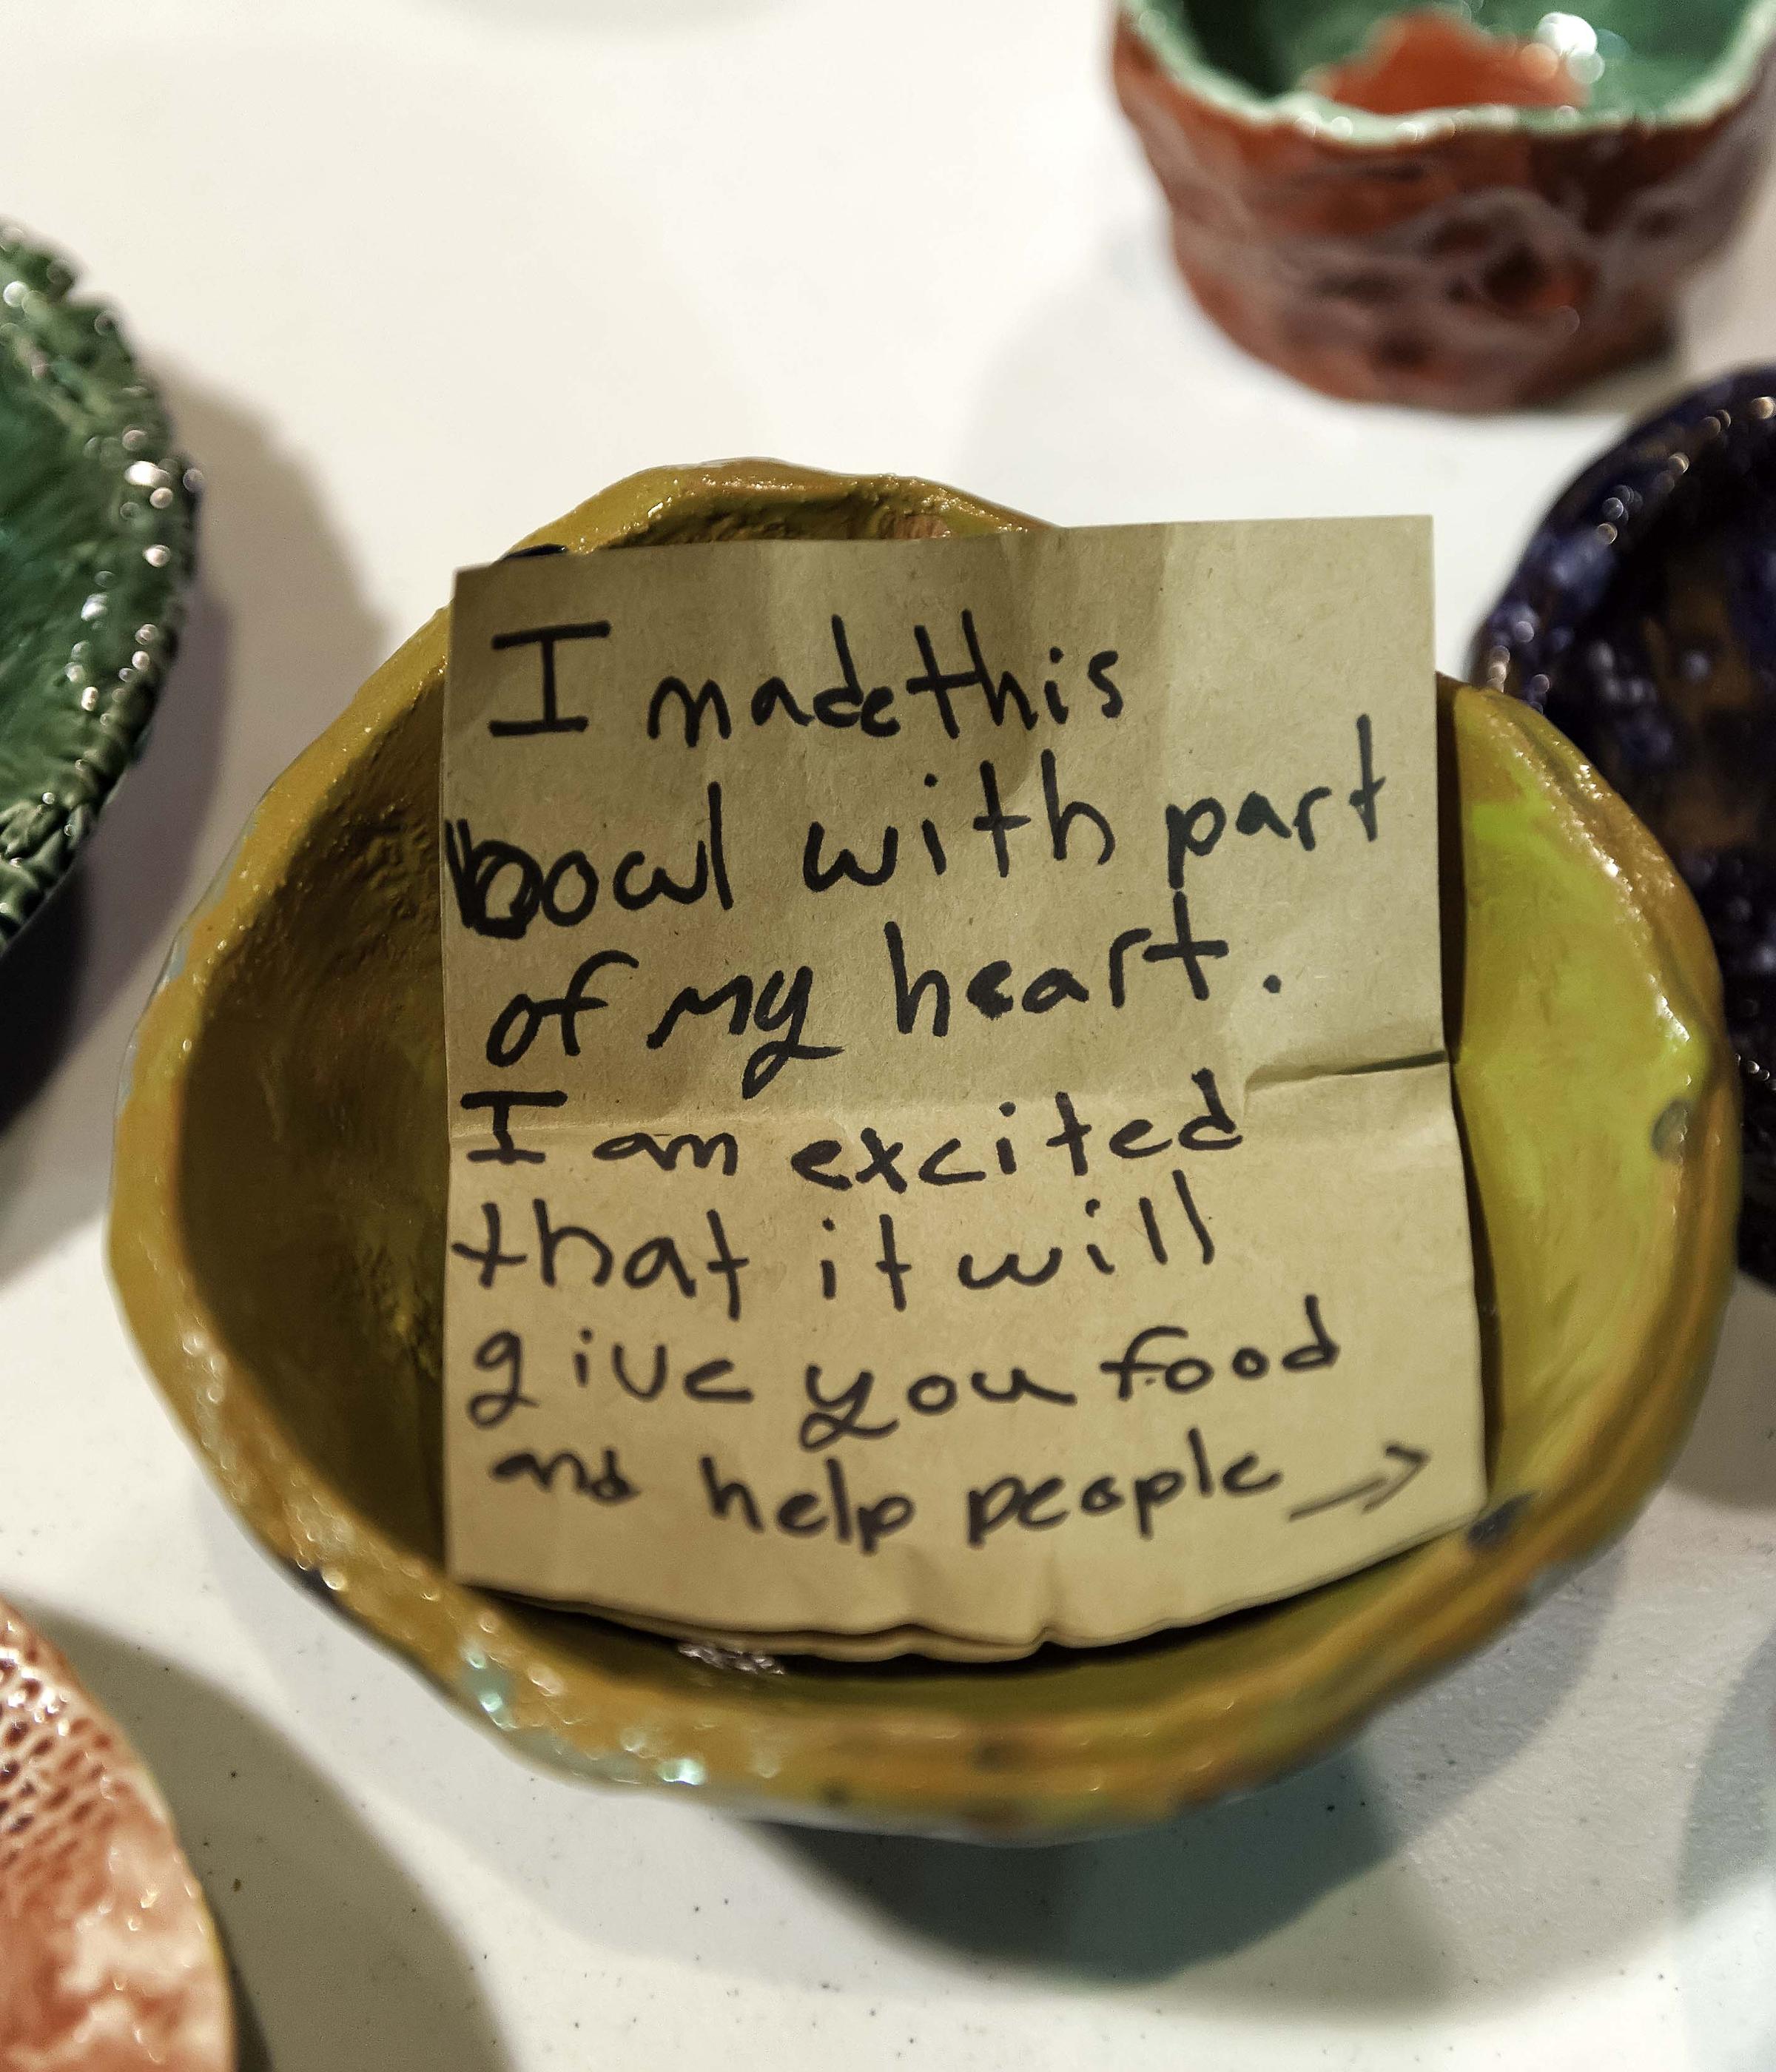 I made this
bowl with part
of my heart.
I am excited
that it will
give you food
and help people →